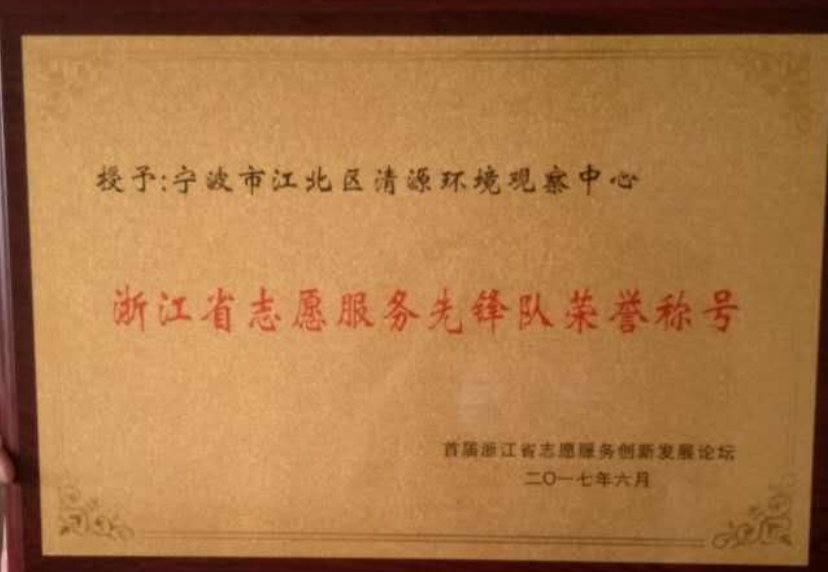 授予:宁波市江北区清源环境观察中心
浙江省志愿服务先锋队荣誉称号
首届浙江省志愿服务创新发展论坛
二〇一七年六月